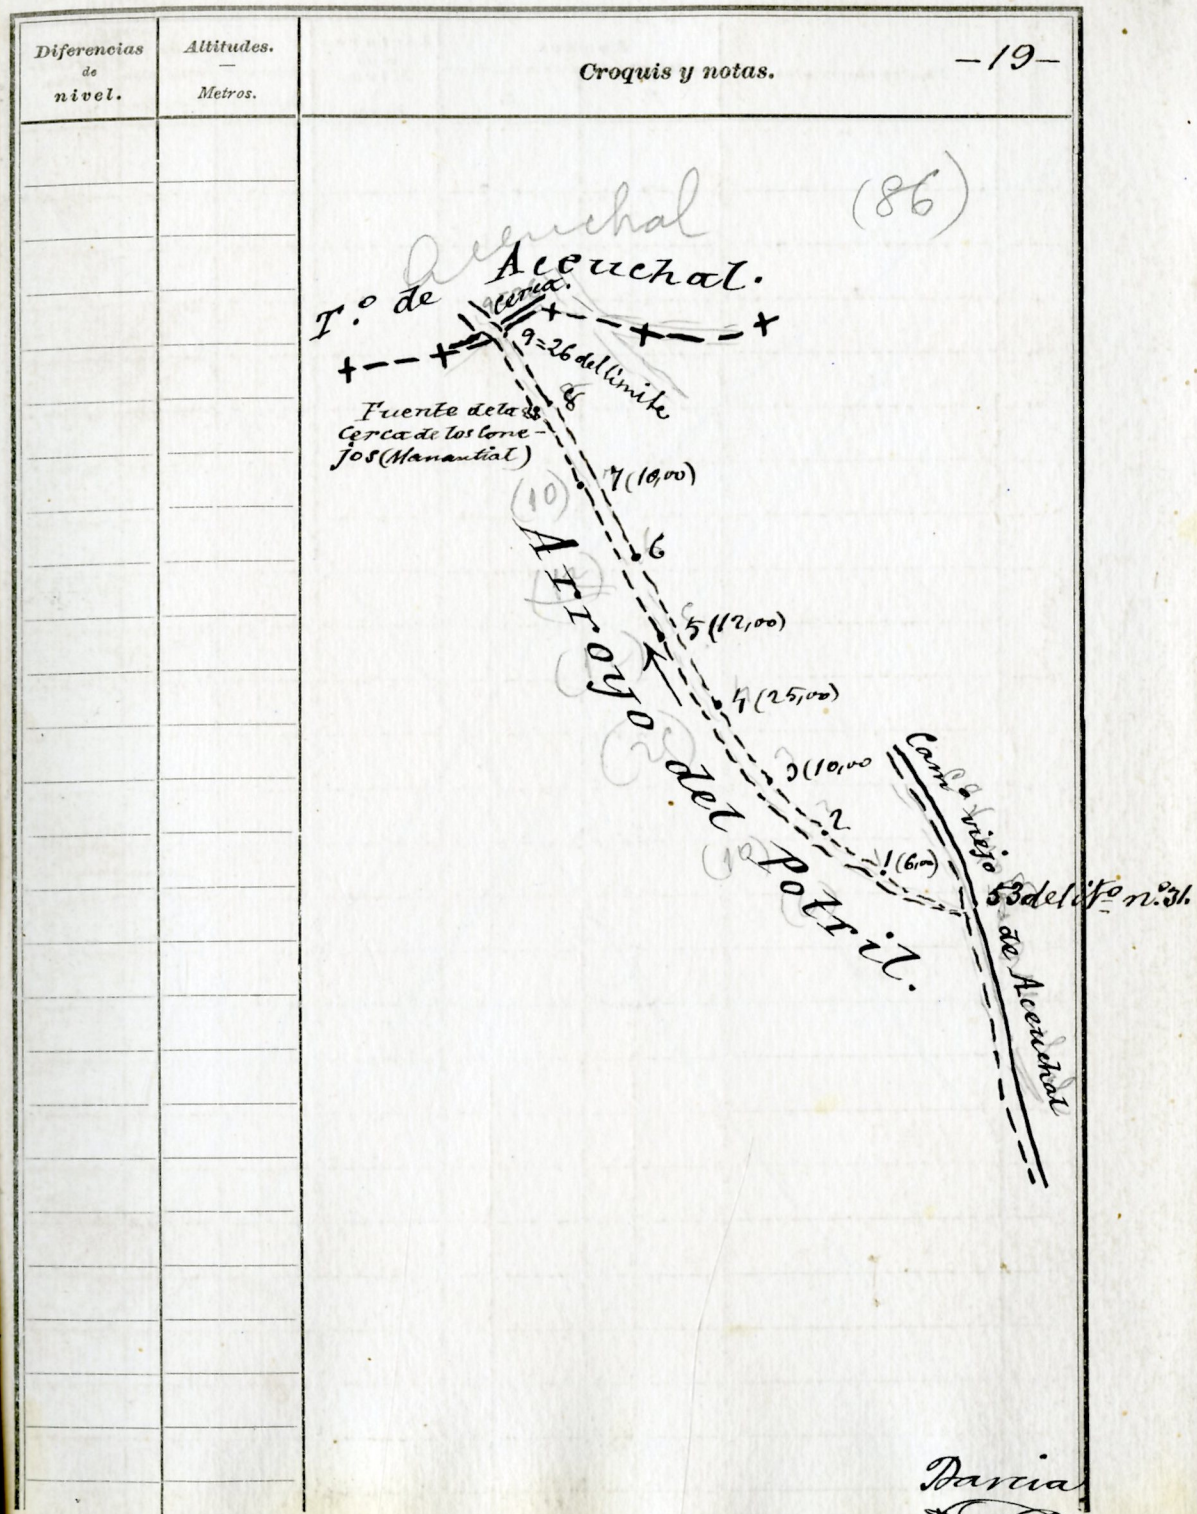 Diferencias
de
nivel.
Altitudes.
Metros.
Croquis y notas.
-19-
(86)
Aceuchal
T.º de Aceuchal.
Cerca.
9=26 del límite
8
Fuente de la
Cerca de los Cone-
jos (Manantial)
7 (10,00)
(10)
6
5 (12,00)
4 (25,00)
3 (10,00
2
1 (6,00)
Arroyo del Potril.
(10)
Cam.º viejo de Aceuchal
53 del it.º n.º 31.
Barcia